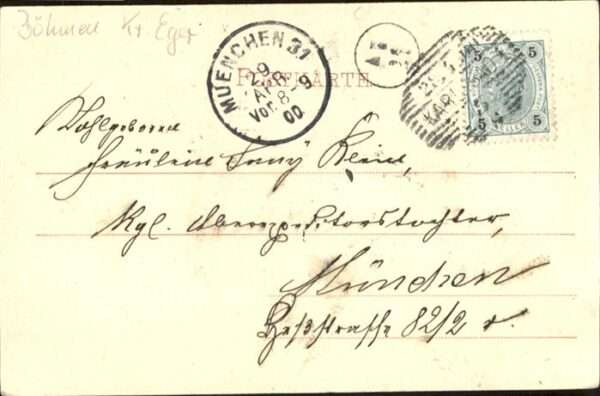 Böhmen Kr. Eger
MUENCHEN 31
9
APR
Vor. 8-9
00
POSTKARTE
5 5
5 5
KARL
Wohlgeboren
Fräulein Fanny Klein,
Kgl. Oberexpeditorstochter,
München
Heßstrasse 82/2 r.